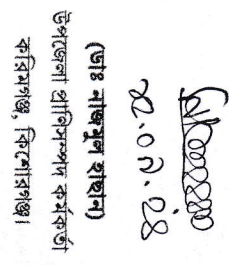 (ডাঃ নাজমুল হাসান)
উপজেলা প্রাণিসম্পদ কর্মকর্তা
করিমগঞ্জ, কিশোরগঞ্জ।